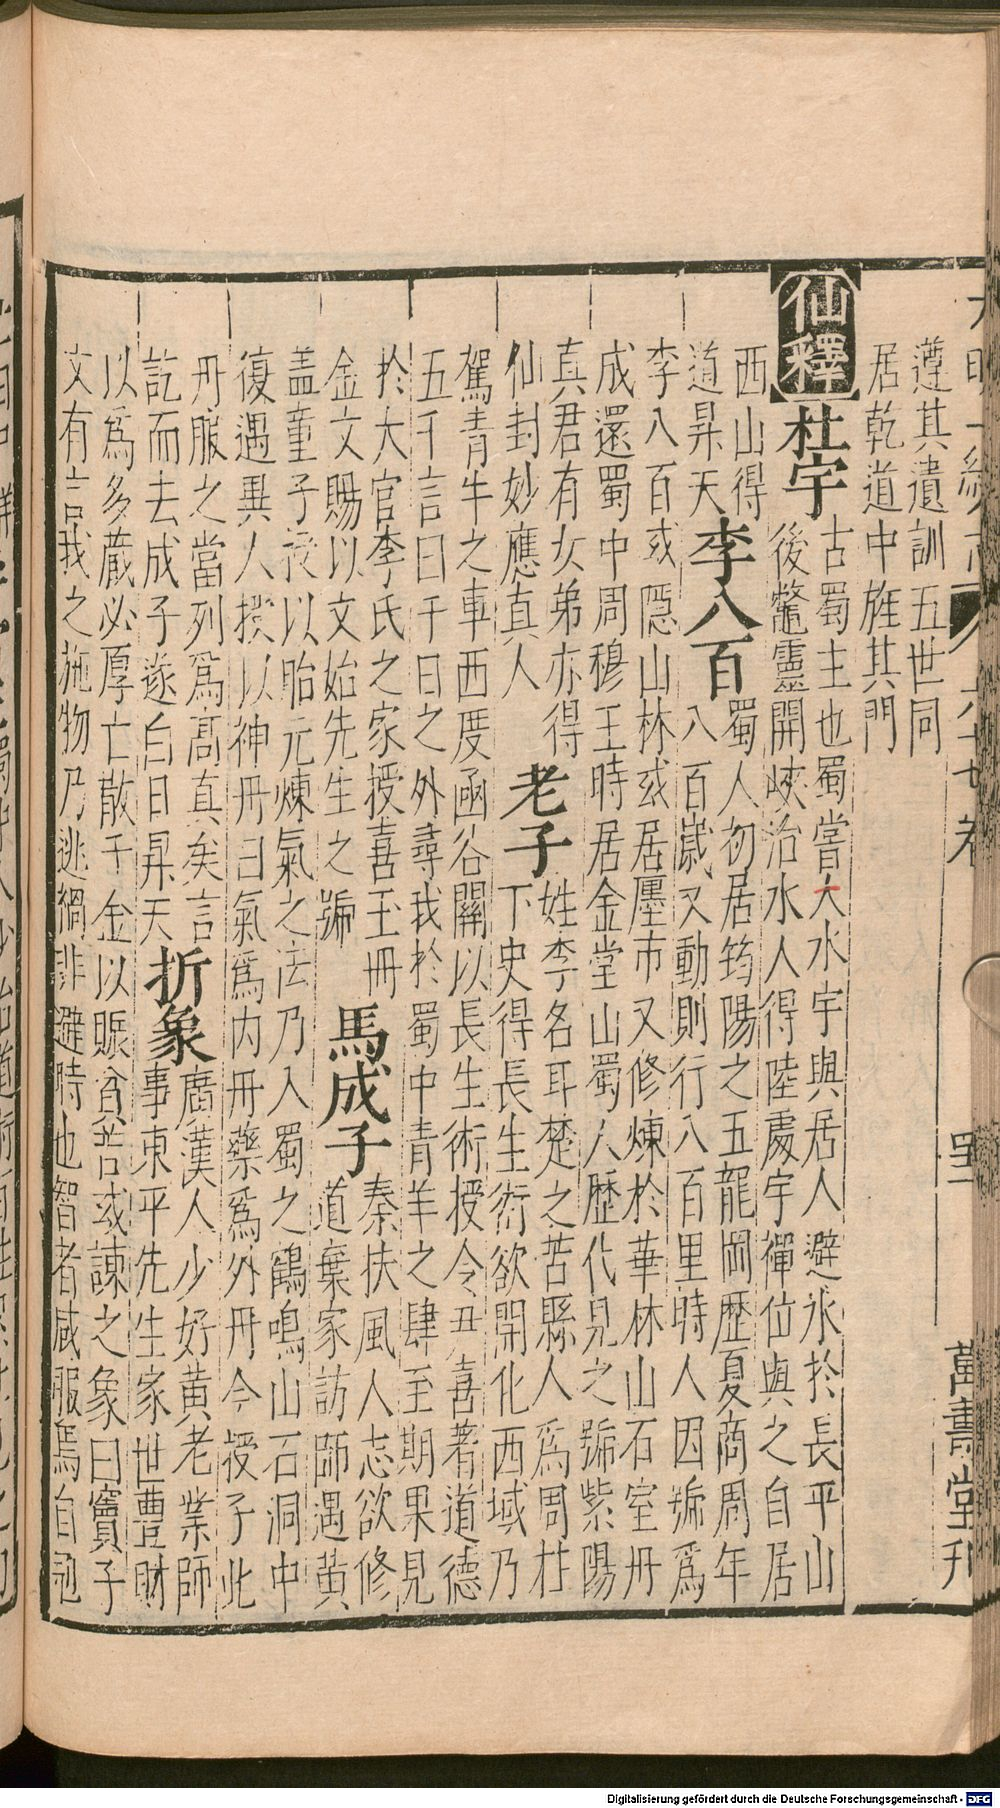 萬壽堂刊
遵其遺訓五世同
居乾道中旌其門
仙釋
杜宇
古蜀主也蜀嘗大水宇與居人避水於長平山
後鱉靈開峽治水人得陸處宇禪位與之自居
西山得
道昇天
李八百
蜀人初居筠陽之五龍岡歷夏商周年
八百歲又動則行八百里時人因號為
李八百或隱山林或居廛市又修煉於華林山石室丹
成還蜀中周穆王時居金堂山蜀人歷代見之號紫陽
真君有女弟亦得
仙封妙應真人
老子
姓李名耳楚之苦縣人為周柱
下史得長生術欲開化西域乃
駕青牛之車西度函谷關以長生術授令尹喜著道德
五千言曰千日之外尋我於蜀中青羊之肆至期果見
於大官李氏之家授喜玉冊
金文賜以文始先生之號
馬成子
秦扶風人志欲修
道棄家訪師遇黃
蓋童子授以胎元煉氣之法乃入蜀之鶴鳴山石洞中
復遇異人授以神丹曰氣為內丹藥為外丹今授子此
丹服之當列為高真矣言
訖而去成子遂白日昇天
折象
廣漢人少好黃老業師
事東平先生家世豐財
以為多藏必厚亡散千金以賑貧苦或諫之象曰竇子
文有言我之施物乃逃禍非避時也智者咸服焉自尅
Digitalisierung gefördert durch die Deutsche Forschungsgemeinschaft - DFG